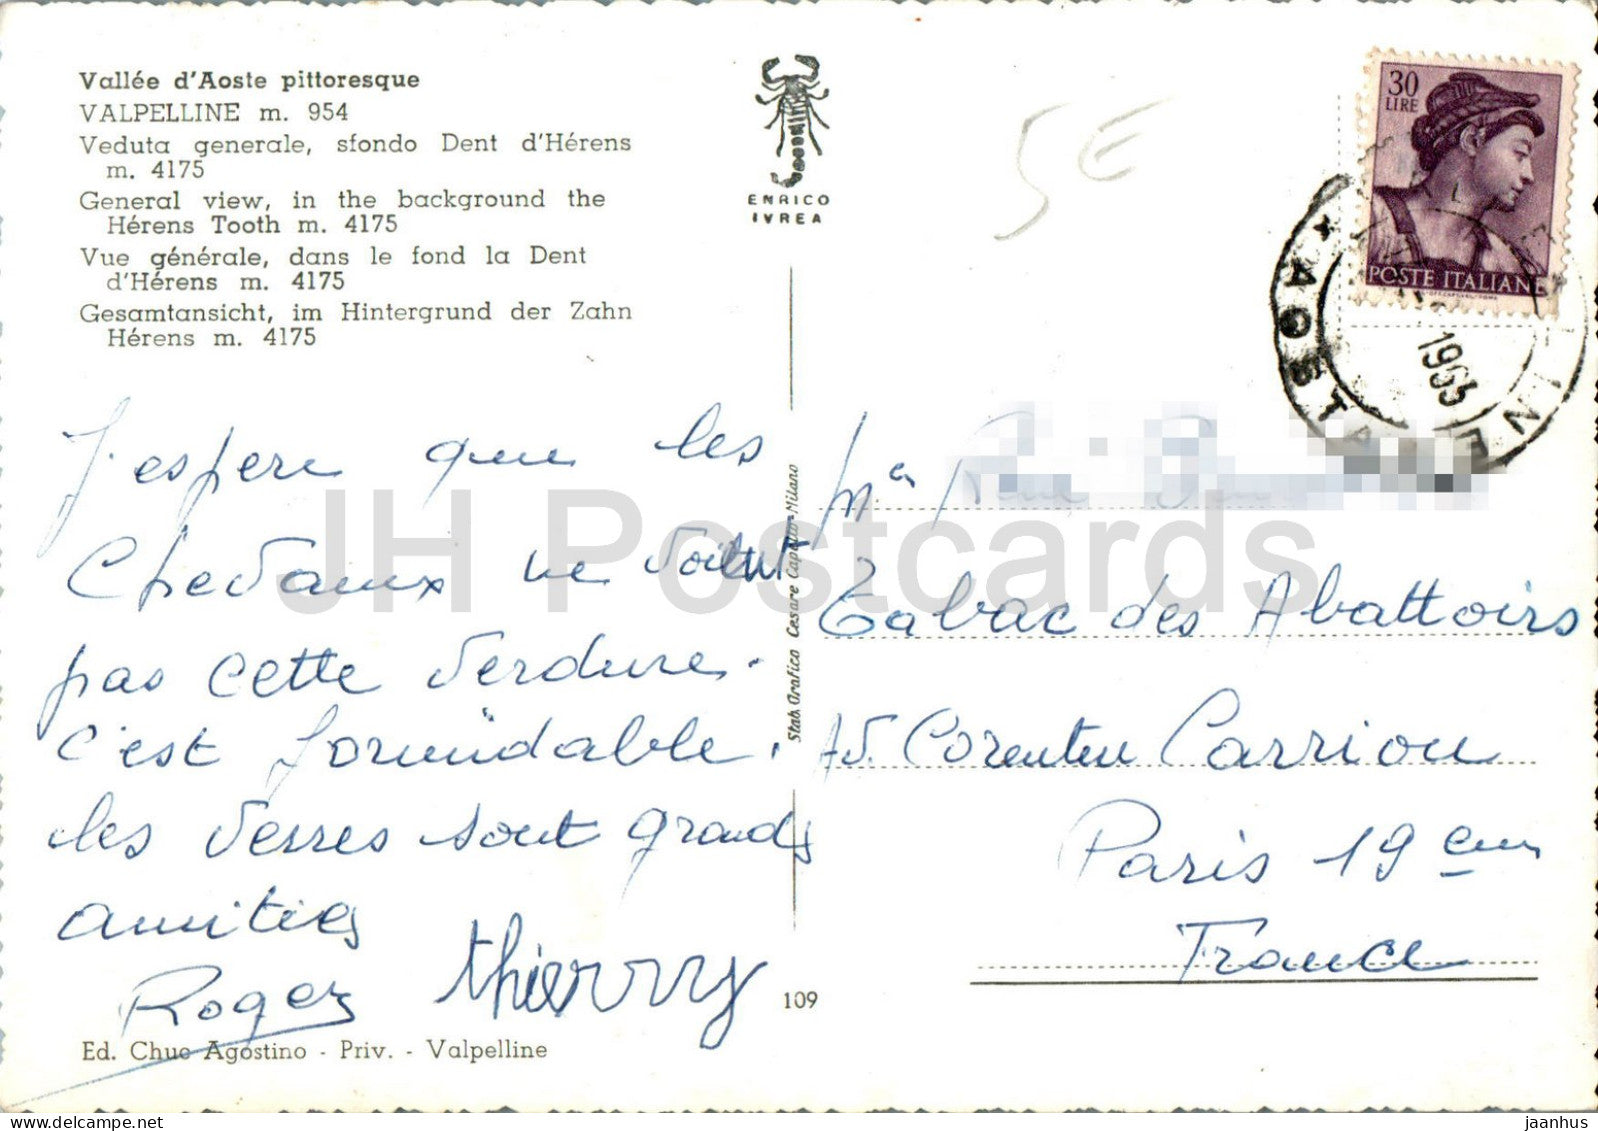 Vallée d'Aoste pittoresque
VALPELLINE m. 954
Veduta generale, sfondo Dent d'Hérens
m. 4175
General view, in the background the
Hérens Tooth m. 4175
Vue générale, dans le fond la Dent
d'Hérens m. 4175
Gesamtansicht, im Hintergrund der Zahn
Hérens m. 4175
ENRICO
IVREA
5E
30
LIRE
POSTE ITALIANE
AOSTA
1965
J'espere que les
Chevaux ne voient
pas cette verdure.
c'est formidable.
les verres sont grands
amities
Roger thierrry
Stab. Grafico Cesare Capello-Milano
Mr
Tabac des Abattoirs
Av. Corenten Carriou
Paris 19 em
France
109
Ed. Chuc Agostino - Priv. - Valpelline
JH Postcards
delcampe.net
jaanhus